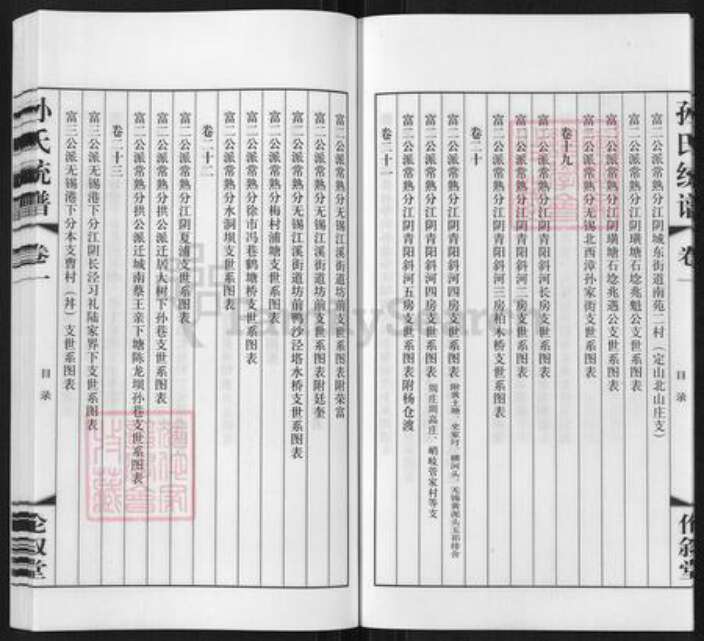 孙氏统谱
卷一
目录
伦叙堂
富二公派常熟分江阴城东街道南苑二村（定山北山庄支）
富二公派常熟分江阴璜塘石埝兆魁公支世系图表
富二公派常熟分江阴璜塘石埝兆遇公支世系图表
富二公派常熟分无锡北西漳孙家街支世系图表
卷十九
富二公派常熟分江阴青阳斜河长房支世系图表
富二公派常熟分江阴青阳斜河二房支世系图表
富二公派常熟分江阴青阳斜河三房柏木桥支世系图表
卷二十
富二公派常熟分江阴青阳斜河四房支世系图表
富二公派常熟分江阴青阳斜河四房支世系图表 周庄周高庄、峭岐菅家村等支
富二公派常熟分江阴青阳斜河五房支世系图表附杨仓渡
卷二十一
富二公派常熟分无锡江溪街道坊前支世系图表附荣富
富二公派常熟分无锡江溪街道坊前支世系图表附廷奎
富二公派常熟分无锡江溪街道坊前鸭沙泾塔水桥支世系图表
富二公派常熟分梅村浦塘支世系图表
富二公派常熟分徐市冯巷鹤塘桥支世系图表
富二公派常熟分水洞坝支世系图表
卷二十二
富二公派常熟分江阴夏浦支世系图表
富二公派常熟分拱公派迁居大树下孙巷支世系图表
富二公派常熟分拱公派迁城南蔡王亲下塘陈龙坝孙巷支世系图表
卷二十三
富三公派无锡港下分江阴长泾习礼陆家界下支世系图表
富三公派无锡港下分本支曹村（丼）支世系图表
孙氏统谱
卷一
目录
伦叙堂
FamilySearch